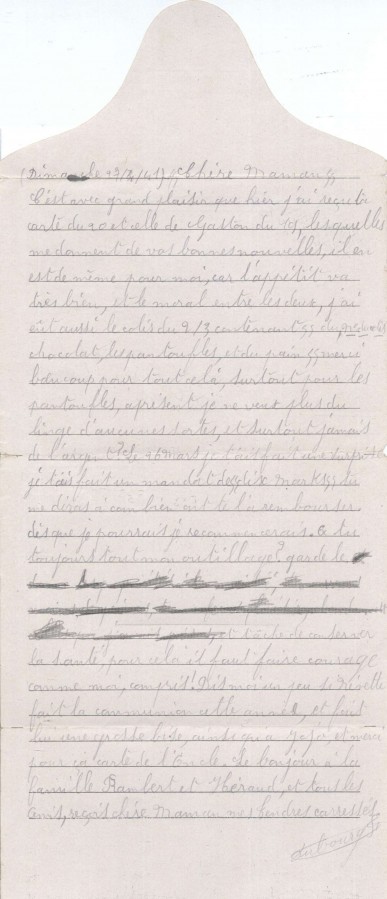 (Dimanche 23/3/41) Chère Maman
C'est avec grand plaisir que hier j'ai reçu ta
carte du 20 et celle de Gaston du 19, lesquelles
me donnent de vos bonnes nouvelles, il en
est de même pour moi, car l'appétit va
très bien, et le moral entre les deux, j'ai
eût aussi le colis du 9/3 contenant du
chocolat, les pantoufles, et du pain merci
beaucoup pour tout celà, surtout pour les
pantoufles, aprésent je ne veux plus du
linge d'aucunes sortes, et surtout jamais
de l'argent. Le 26 Mars je t'ais fait une surprise
je t'ais fait un mandat de dix Marks tu
me diras à combien on te l'a rembourser
dis que je pourrais je recommencerais. As tu
toujours tout mon outillage? garde le
et tâche de conserver
la santé, pour celà il faut faire courage
comme moi, compris! Dis moi un peu si
fait la communion cette année, et fait
lui une grosse bise, ainsi qu'a Jojo, et merci
pour ça carte de l'Encle. Le bonjour à la
famille Rambert et Théraud, et tous les
amis, reçois chère Maman mes tendres carresses